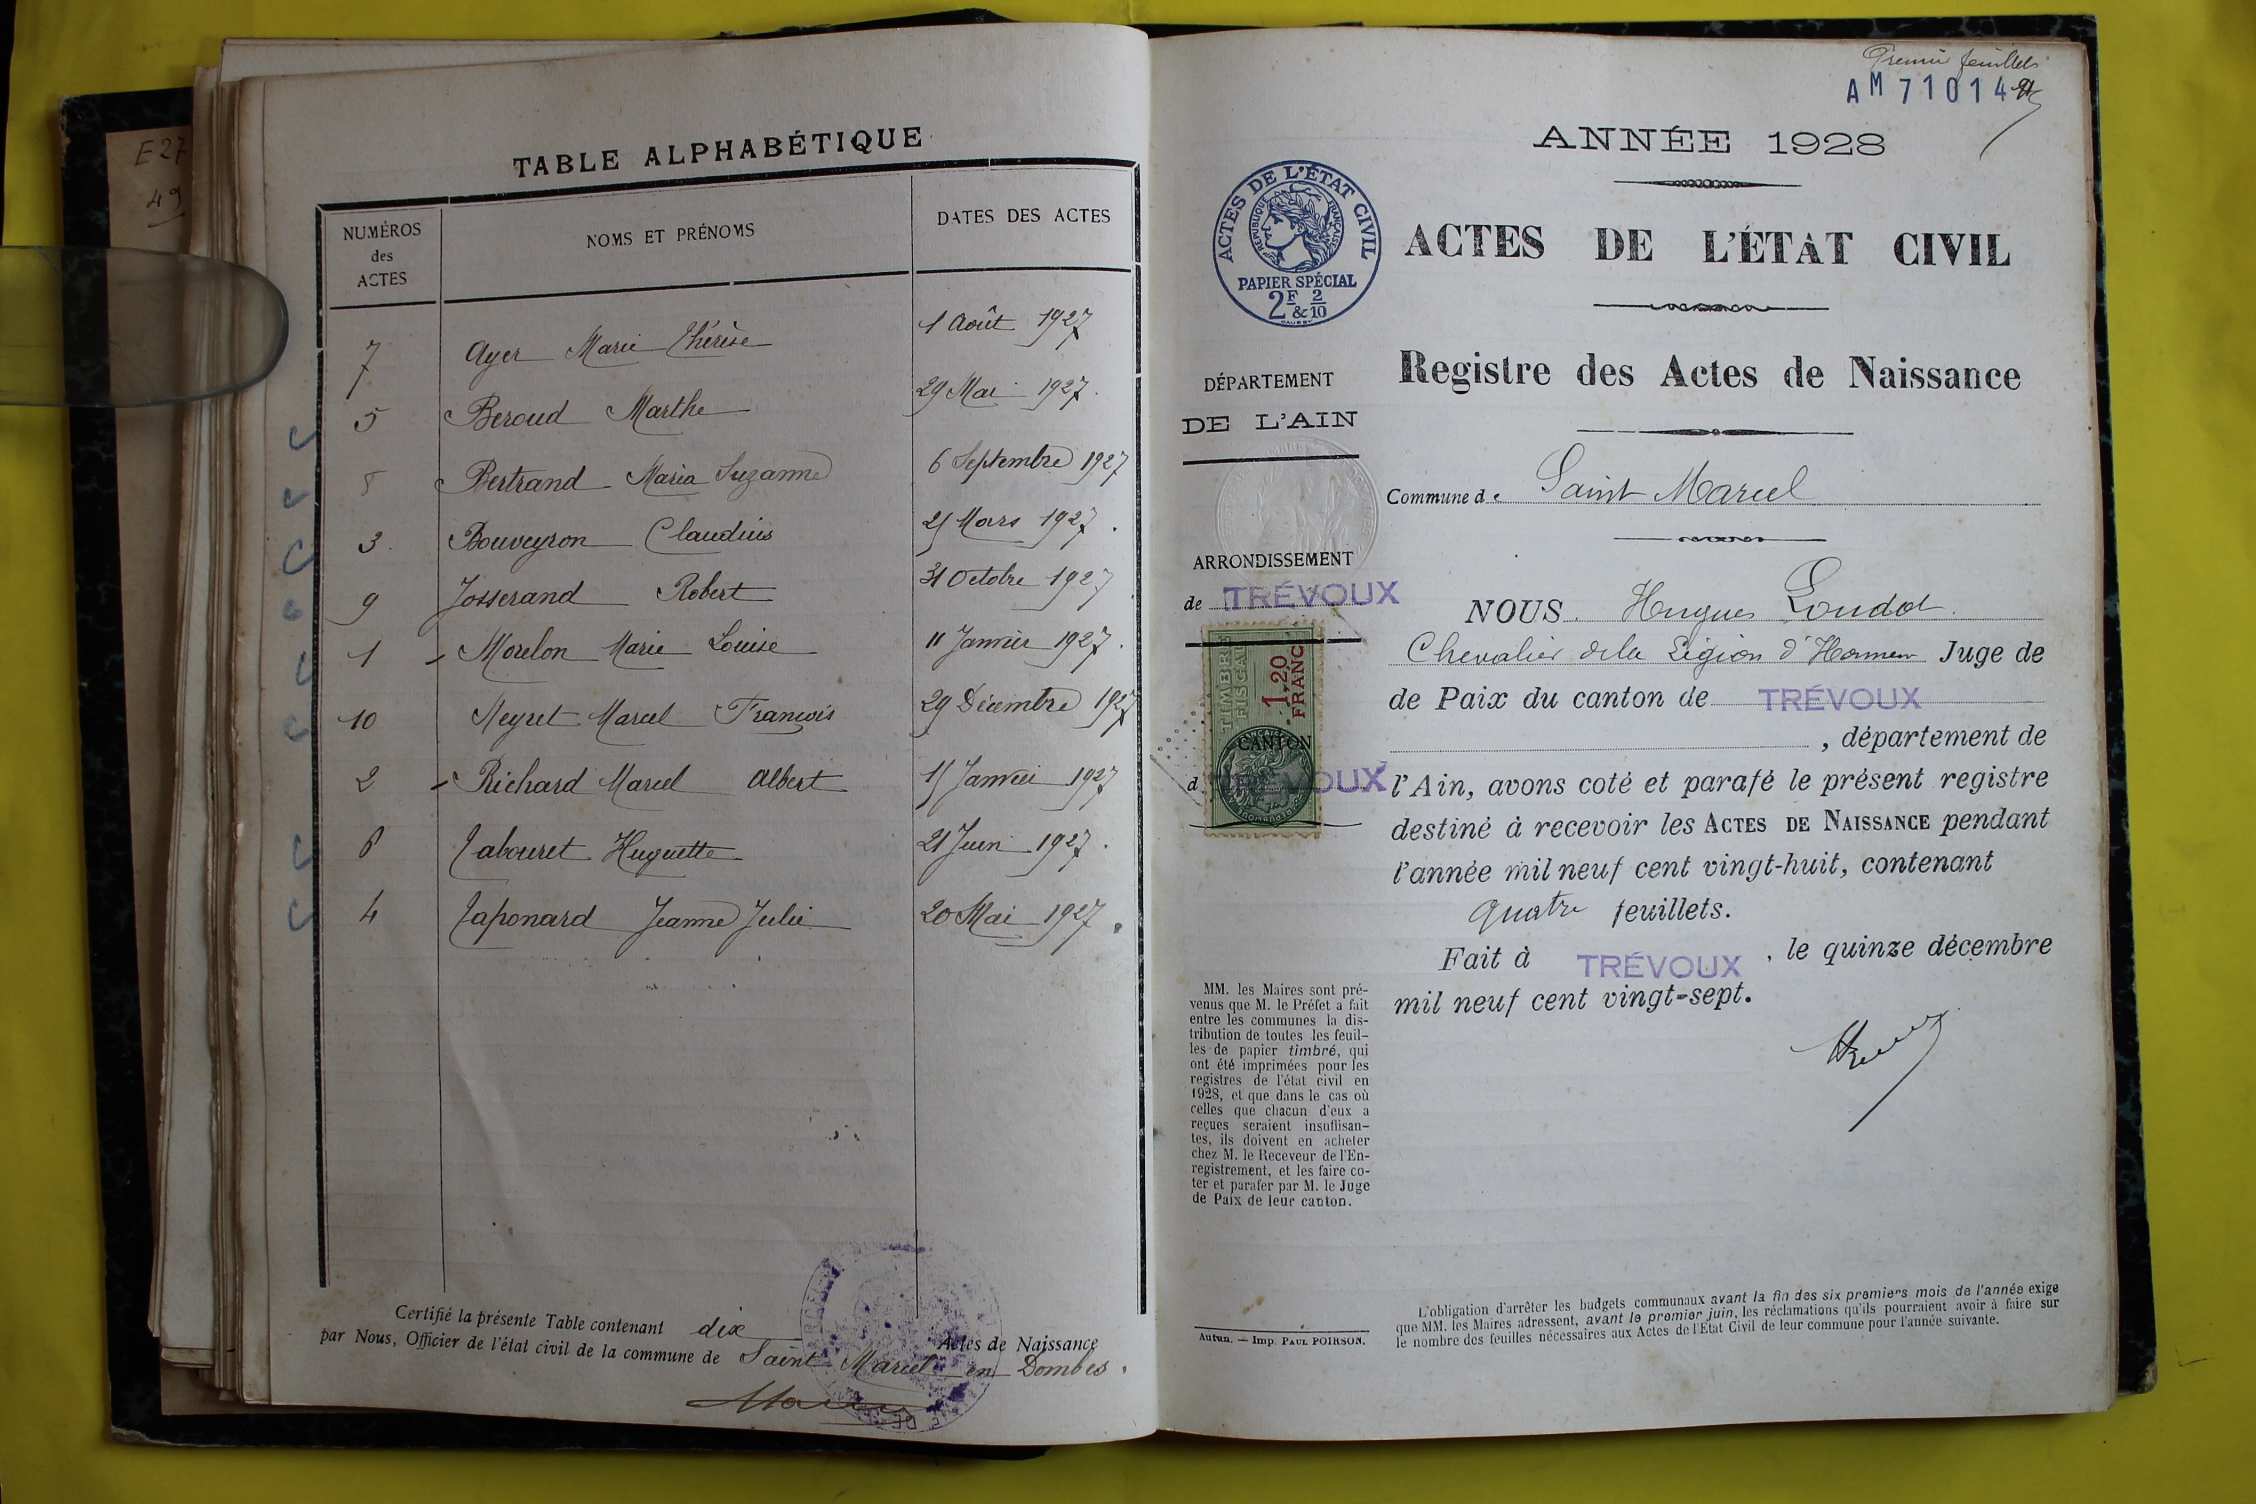 E 27
49
TABLE ALPHABÉTIQUE
NUMÉROS des ACTES
NOMS ET PRÉNOMS
DATES DES ACTES
7 Ayer Marie Thérèse 1 Août 1927
5 Beroud Marthe 29 Mai 1927.
8 Bertrand Maria Suzanne 6 Septembre 1927
3. Bouveyron Claudius 21 Mars 1927.
9 Josserand Robert 31 Octobre 1927
1 Morelon Marie Louise 11 Janvier 1927.
10 Neyret Marcel François 29 Décembre 1927
2 Richard Marcel Albert 15 Janvier 1927
6 Tabouret Huguette 21 Juin 1927.
4 Taponard Jeanne Julie 20 Mai 1927.
Certifié la présente Table contenant dix Actes de Naissance
par Nous, Officier de l'état civil de la commune de Saint Marcel en Dombes.
Premier feuillet
AM 71014
ANNÉE 1928
ACTES DE L'ÉTAT CIVIL
RÉPUBLIQUE FRANÇAISE
PAPIER SPÉCIAL
2F & 2/10
ACTES DE L'ÉTAT CIVIL
Registre des Actes de Naissance
DÉPARTEMENT
DE L'AIN
Commune de Saint Marcel
ARRONDISSEMENT
de TRÉVOUX
TIMBRE FISCAL
1.20 FRANC
CANTON
d TRÉVOUX
NOUS. Hugues Loudot.
Chevalier de la Légion d'Honneur Juge de
de Paix du canton de TRÉVOUX
, département de
l'Ain, avons coté et parafé le présent registre
destiné à recevoir les ACTES DE NAISSANCE pendant
l'année mil neuf cent vingt-huit, contenant
quatre feuillets.
Fait à TRÉVOUX, le quinze décembre
mil neuf cent vingt-sept.
MM. les Maires sont pré-
venus que M. le Préfet a fait
entre les communes la dis-
tribution de toutes les feuil-
les de papier timbré, qui
ont été imprimées pour les
registres de l'état civil en
1928, et que dans le cas où
celles que chacun d'eux a
reçues seraient insuffisan-
tes, ils doivent en acheter
chez M. le Receveur de l'En-
registrement, et les faire co-
ter et parafer par M. le Juge
de Paix de leur canton.
Autun. — Imp. PAUL POIRSON.
L'obligation d'arrêter les budgets communaux avant la fin des six premiers mois de l'année exige
que MM. les Maires adressent, avant le premier juin, les réclamations qu'ils pourraient avoir à faire sur
le nombre des feuilles nécessaires aux Actes de l'État Civil de leur commune pour l'année suivante.